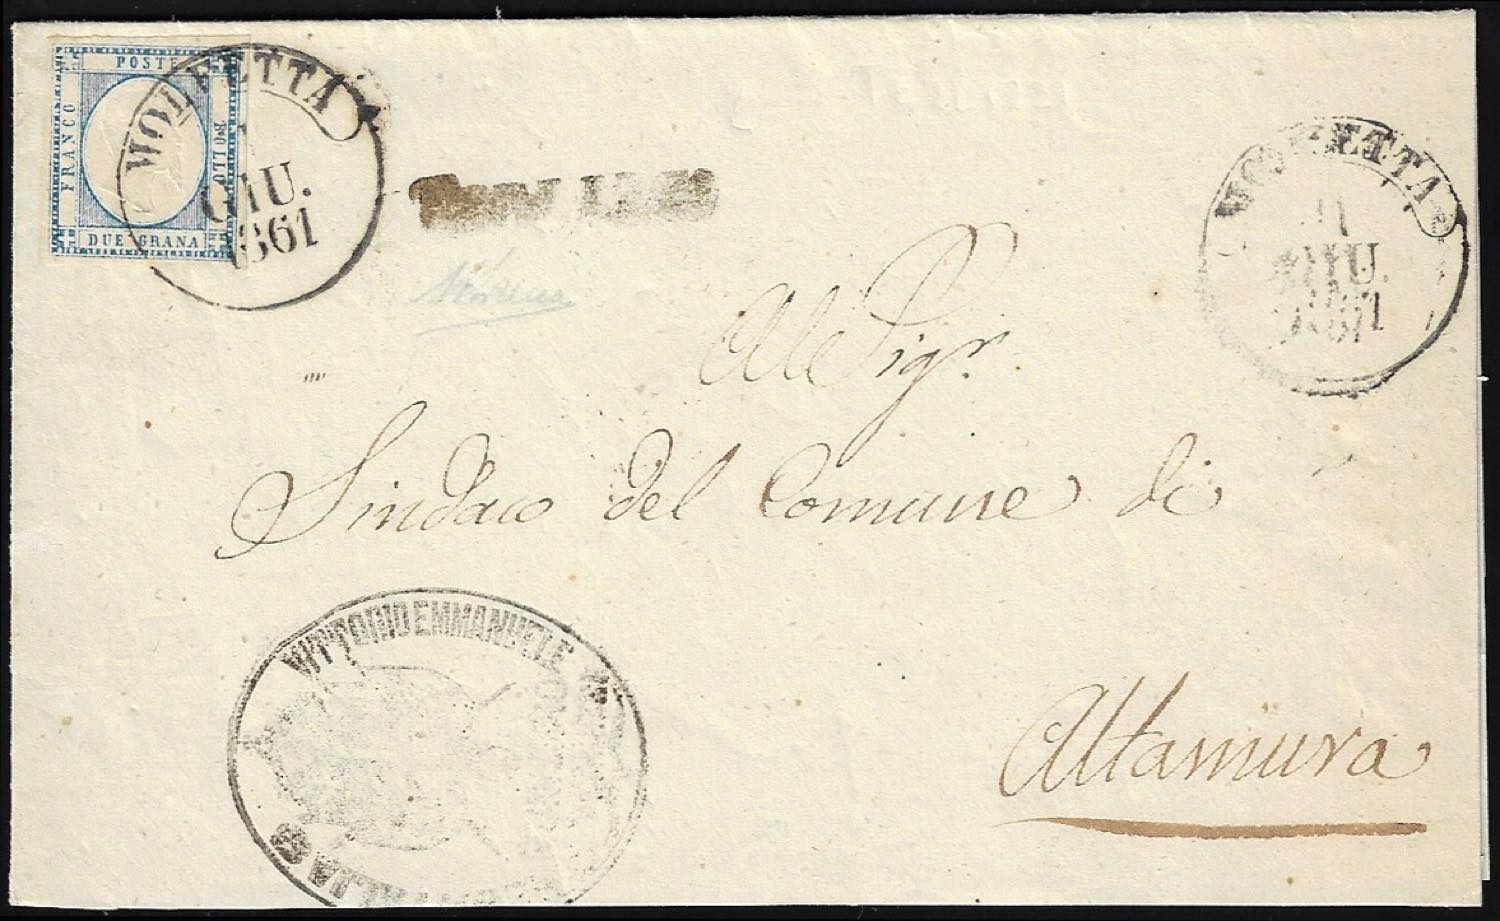 POSTE
FRANCO
BOLLO
DUE GRANA
MOLFETTA
GIU.
1861
MOLFETTA
11
GIU.
1861
Al Sigr.
Sindaco del Comune di
Altamura
VITTORIO EMMANUELE